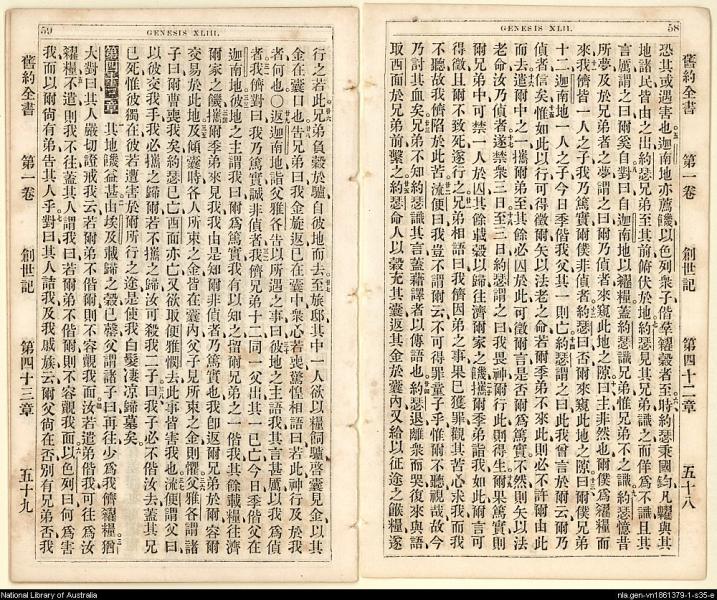 58
GENESIS XLII.
舊約全書 第一卷 創世記 第四十二章 五十八
恐其或遇害也迦南地亦薦饑以色列衆子偕羣糴穀者至時約瑟秉國鈞凡糶與其
地諸民皆由之出約瑟兄弟至其前俯伏於地約瑟見其兄弟識之而佯爲不識且其
言厲謂之曰爾奚自對曰自迦南地以糴糧蓋約瑟識兄弟惟兄弟不之識約瑟憶昔
所夢及於兄弟者之夢謂之曰爾乃偵者來窺此地之隙曰主非然也爾僕爲糴糧而
來我儕皆一人之子我乃篤實爾僕非偵者約瑟曰否爾來窺此地之隙曰爾僕兄弟
十二迦南地一人之子今日季偕我父其一則亡約瑟謂之曰此我曾言於爾云爾乃
偵者信矣惟如此以行可得徵爾矢以法老之命若爾季弟不來此則必不許爾由此
而去遣爾中之一攜爾弟至其餘必囚於此可徵爾言是否爾爲篤實不然則矢以法
老命汝乃偵者遂禁衆三日至三日約瑟謂之曰我畏神爾行此則得生爾果篤實則
爾兄弟中可禁一人於囚其餘載穀以歸往濟爾家之饑攜爾季弟詣我如此爾言可
得徵且爾不致死遂行之兄弟相語曰我儕因弟之事果已獲罪觀其苦心求我而我
不聽故我儕陷於此苦流便曰我豈不謂爾云不可得罪童子乎惟爾不聽視哉故今
乃討其血矣兄弟不知約瑟識其言蓋藉譯者以傳語也約瑟退離衆而哭復來與語
取西面於兄弟前繫之約瑟命人以穀充其囊返其金於囊內又給以征途之餱糧遂
59
GENESIS XLIII.
行之若此兄弟負穀於驢自彼地而去至旅邸其中一人欲以糧飼驢啓囊見金以其
金在囊口也告兄弟曰我金旋返已在囊中衆心若喪驚惶相語曰若此神行及於我
者何也○返迦南地詣父雅各告以所遇之事曰彼地之主語我其言甚厲以我爲偵
者我儕對曰我乃篤實誠非偵者我儕兄弟十二同一父出其一已亡今日季偕父在
迦南地彼地之主謂我曰爾爲篤實我有以知之留爾兄弟之一偕我其餘載糧往濟
爾家之饑攜爾季弟來見我我由是知爾非偵者乃篤實也我卽返爾兄弟於爾容爾
交易於此地及傾囊時各人所束之金皆在囊內父子見所束之金則懼父雅各謂諸
子曰爾曹喪我矣約瑟已亡西面亦亡又欲取便雅憫去此事皆害我也流便謂父曰
以彼交我手我必攜之歸爾若不攜之歸汝可殺我二子曰我子必不偕汝去蓋其兄
已死惟彼獨在彼若遭害於爾所行之途是使我白髮凄涼歸墓矣
第四十三章 其地饑益甚由埃及載歸之穀已罄父謂諸子曰再往少爲我儕糴糧猶
大對曰其人嚴切證戒我云若爾弟不偕爾則不容覿我面汝若遣弟偕我可往爲汝
糴糧不遣則我不往蓋其人謂我曰若爾弟不偕爾則不容覿我面以色列曰何爲害
我而以爾尙有弟告其人乎對曰其人詰我及我戚族云爾父尙在否別有兄弟否我
舊約全書 第一卷 創世記 第四十三章 五十九
National Library of Australia
nla.gen-vn1861379-1-s35-e